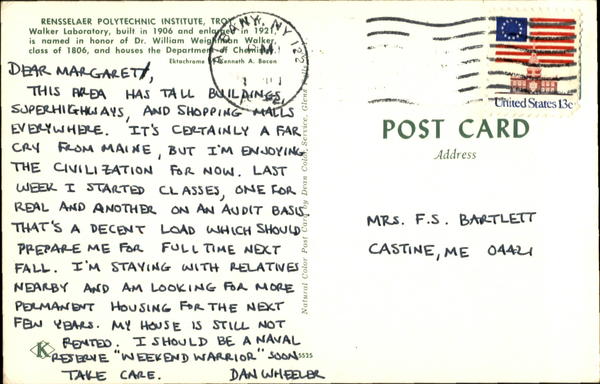 RENSSELAER POLYTECHNIC INSTITUTE, TROY
Walker Laboratory, built in 1906 and enlarged in 1921,
is named in honor of Dr. William Weightman Walker,
class of 1806, and houses the Department of Chemistry.
Ektachrome Kenneth A. Bacon
ALBANY, NY 122
DEAR MARGARET,
THIS AREA HAS TALL BUILDINGS,
SUPERHIGHWAYS, AND SHOPPING MALLS
EVERYWHERE. IT'S CERTAINLY A FAR
CRY FROM MAINE, BUT I'M ENJOYING
THE CIVILIZATION FOR NOW. LAST
WEEK I STARTED CLASSES, ONE FOR
REAL AND ANOTHER ON AN AUDIT BASIS
THAT'S A DECENT LOAD WHICH SHOULD
PREPARE ME FOR FULL TIME NEXT
FALL. I'M STAYING WITH RELATIVES
NEARBY AND AM LOOKING FOR MORE
PERMANENT HOUSING FOR THE NEXT
FEW YEARS. MY HOUSE IS STILL NOT
RENTED. I SHOULD BE A NAVAL
RESERVE "WEEKEND WARRIOR" SOON.
TAKE CARE. DAN WHEELER
K
5525
Natural Color Post Card by Dean Color Service, Glens
United States 13c
POST CARD
Address
MRS. F.S. BARTLETT
CASTINE, ME 04421